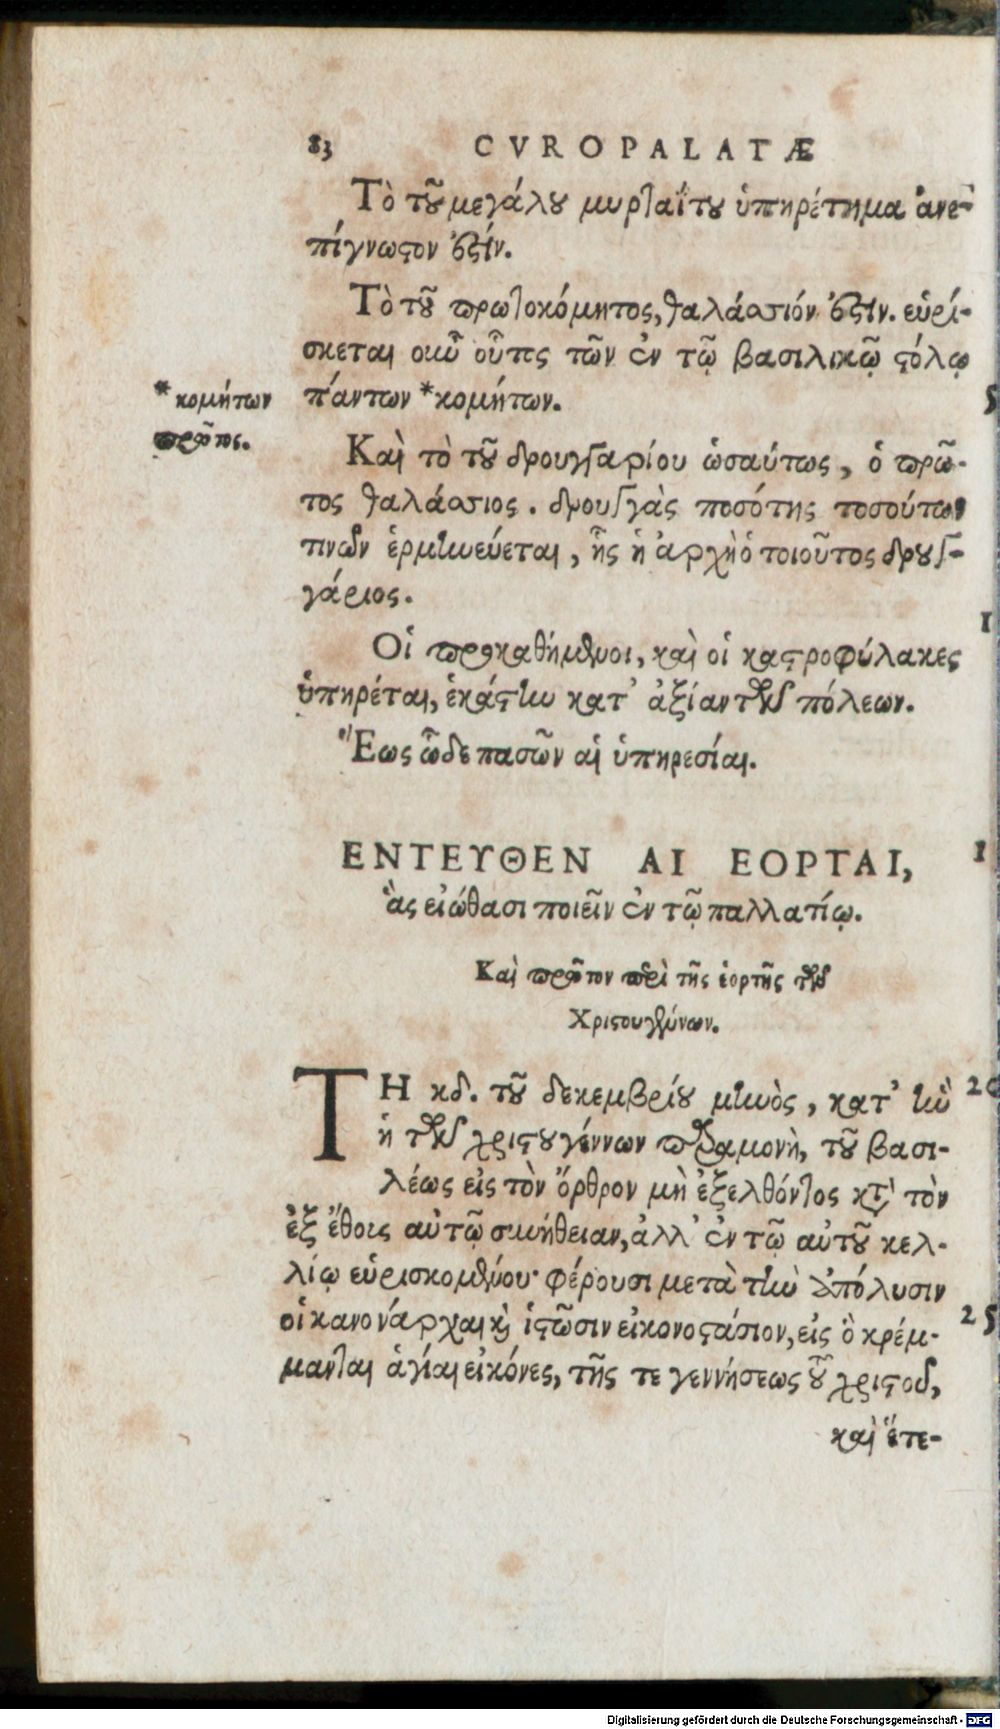 83 CVROPALATÆ
Τὸ τοῦ μεγάλου μυρταΐτου ὑπηρέτημα ἀνε-
πίγνωστον ἐστίν.
Τὸ τοῦ πρωτοκόμητος, θαλάσσιόν ἐστιν. εὑρί-
σκεται οὖν οὗτος τῶν ἐν τῷ βασιλικῷ στόλῳ
πάντων *κομήτων.
* κομήτων
πρῶτος.
Καὶ τὸ τοῦ δρουγγαρίου ὡσαύτως, ὁ πρῶ-
τος θαλάσσιος. δρουγγὰς ποσότης τοσούτων
τινῶν ἑρμηνεύεται, ἧς ἡ ἀρχὴ ὁ τοιοῦτος δρουγ-
γάριος.
Οἱ προκαθήμενοι, καὶ οἱ καστροφύλακες
ὑπηρέται, ἑκάστην κατ' ἀξίαν τῶν πόλεων.
Ἕως ὧδε πασῶν αἱ ὑπηρεσίαι.
ΕΝΤΕΥΘΕΝ ΑΙ ΕΟΡΤΑΙ,
ἃς εἰώθασι ποιεῖν ἐν τῷ παλλατίῳ.
Καὶ πρῶτον περὶ τῆς ἑορτῆς τῶν
Χριστουγέννων.
ΤΗ κδ. τοῦ δεκεμβρίου μηνὸς, κατ' ἣν
ἡ τῶν χριστουγέννων παραμονὴ, τοῦ βασι-
λέως εἰς τὸν ὄρθρον μὴ ἐξελθόντος κατὰ τὸν
ἐξ ἔθους αὐτῷ συνήθειαν, ἀλλ' ἐν τῷ αὐτοῦ κελ-
λίῳ εὑρισκομένου· φέρουσι μετὰ τὴν ἀπόλυσιν
οἱ κανονάρχαι καὶ ἱστῶσιν εἰκονοστάσιον, εἰς ὃ κρέμ-
μανται ἁγίαι εἰκόνες, τῆς τε γεννήσεως τοῦ χριστοῦ,
καὶ ἕτε-
5
1
1
20
25
Digitalisierung gefördert durch die Deutsche Forschungsgemeinschaft - DFG